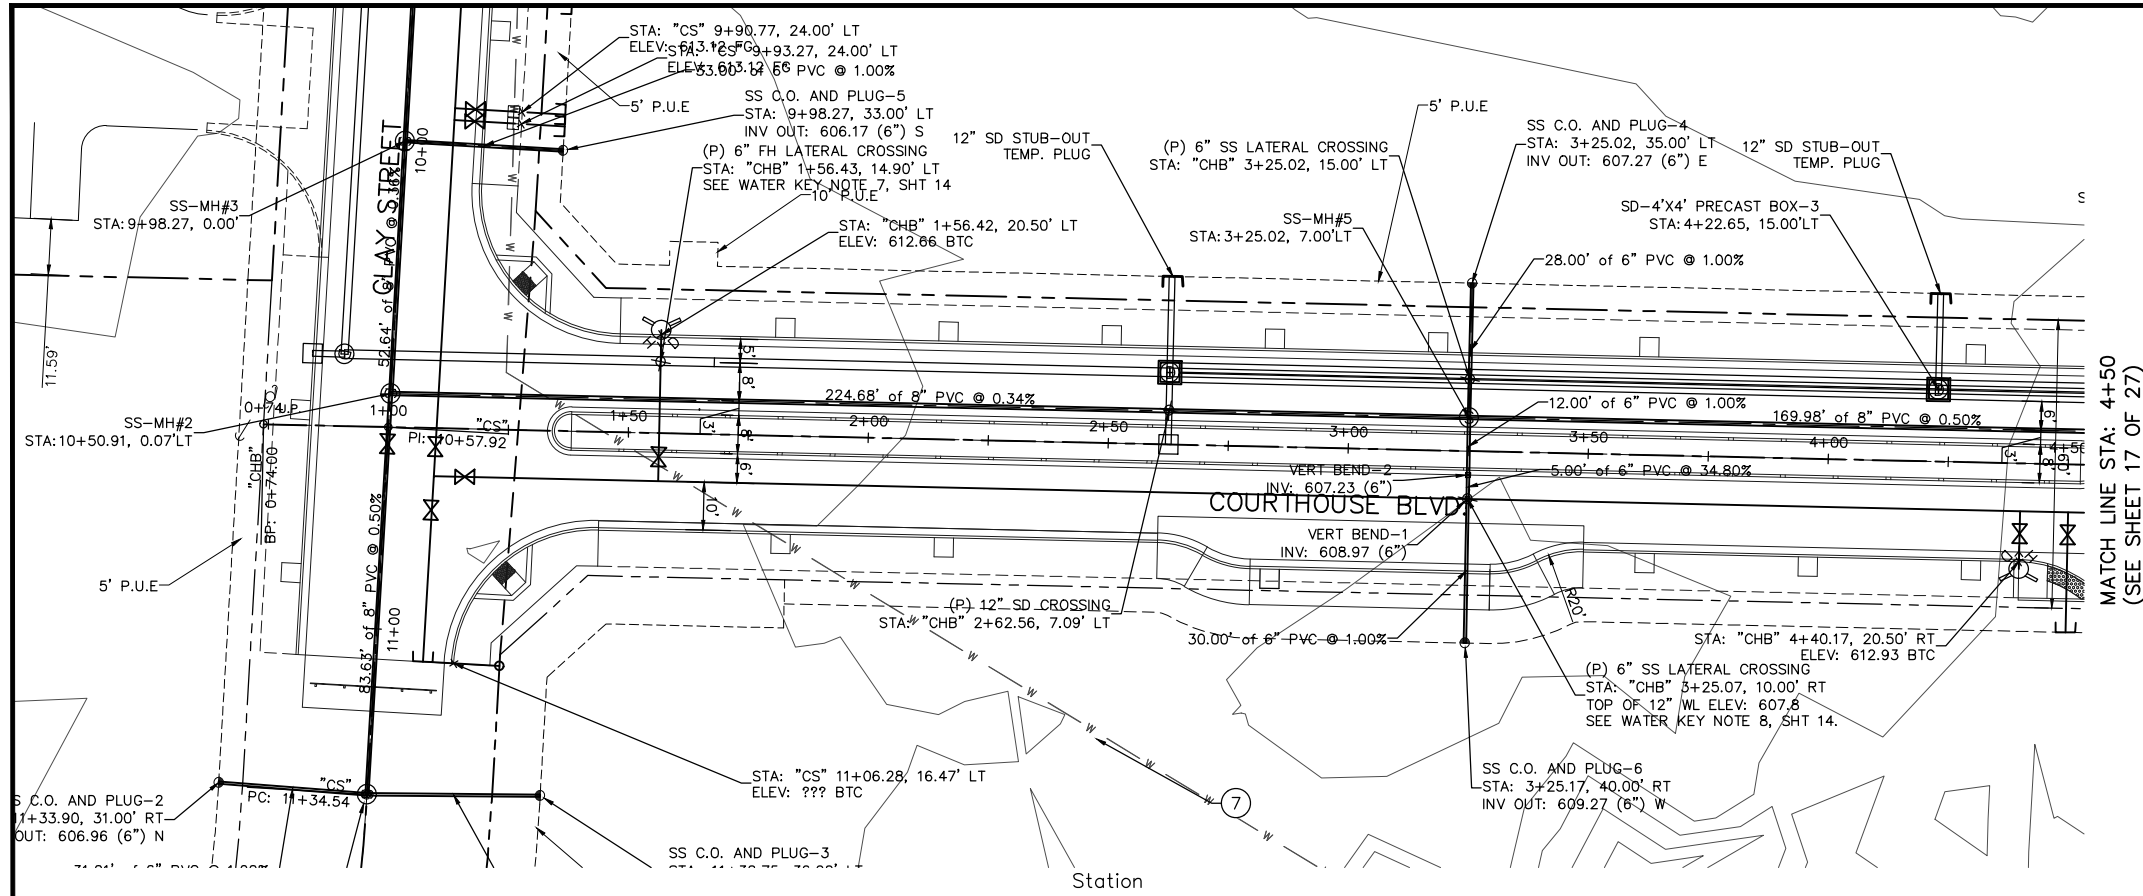 STA: "CS" 9+90.77, 24.00' LT
ELEV: 613.12 FG
STA: "CS" 9+93.27, 24.00' LT
ELEV: 613.12 FG
33.00' of 6" PVC @ 1.00%
5' P.U.E
SS C.O. AND PLUG-5
STA: 9+98.27, 33.00' LT
INV OUT: 606.17 (6") S
(P) 6" FH LATERAL CROSSING
STA: "CHB" 1+56.43, 14.90' LT
SEE WATER KEY NOTE 7, SHT 14
10' P.U.E
STA: "CHB" 1+56.42, 20.50' LT
ELEV: 612.66 BTC
12" SD STUB-OUT
TEMP. PLUG
(P) 6" SS LATERAL CROSSING
STA: "CHB" 3+25.02, 15.00' LT
5' P.U.E
SS C.O. AND PLUG-4
STA: 3+25.02, 35.00' LT
INV OUT: 607.27 (6") E
12" SD STUB-OUT
TEMP. PLUG
SS-MH#5
STA: 3+25.02, 7.00'LT
SD-4'X4' PRECAST BOX-3
STA: 4+22.65, 15.00'LT
28.00' of 6" PVC @ 1.00%
SS-MH#3
STA: 9+98.27, 0.00'
10+00
CLAY STREET
52.64' of 8" PVC @ 0.36%
11.59'
5'
8'
3'
8'
6'
10'
224.68' of 8" PVC @ 0.34%
12.00' of 6" PVC @ 1.00%
169.98' of 8" PVC @ 0.50%
0+74
U.P.
1+00
1+50
2+00
2+50
3+00
3+50
4+00
4+50
SS-MH#2
STA: 10+50.91, 0.07'LT
"CS"
PI: 10+57.92
"CHB"
BP: 0+74.00
5.00' of 6" PVC @ 34.80%
VERT BEND-2
INV: 607.23 (6")
COURTHOUSE BLVD.
VERT BEND-1
INV: 608.97 (6")
6'
3'
8'
60'
MATCH LINE STA: 4+50
(SEE SHEET 17 OF 27)
5' P.U.E
83.63' of 8" PVC @ 0.50%
11+00
(P) 12" SD CROSSING
STA: "CHB" 2+62.56, 7.09' LT
30.00' of 6" PVC @ 1.00%
R20'
STA: "CHB" 4+40.17, 20.50' RT
ELEV: 612.93 BTC
(P) 6" SS LATERAL CROSSING
STA: "CHB" 3+25.07, 10.00' RT
TOP OF 12" WL ELEV: 607.8
SEE WATER KEY NOTE 8, SHT 14.
STA: "CS" 11+06.28, 16.47' LT
ELEV: ??? BTC
7
SS C.O. AND PLUG-6
STA: 3+25.17, 40.00' RT
INV OUT: 609.27 (6") W
"CS"
PC: 11+34.54
S C.O. AND PLUG-2
11+33.90, 31.00' RT
OUT: 606.96 (6") N
SS C.O. AND PLUG-3
Station